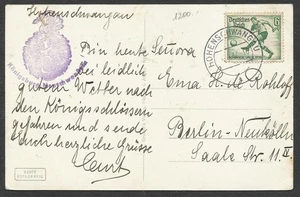 Hohenschwangau
1200.
Bin heute Señora
bei leidlich
gutem Wetter nach
den Königsschlössern
gefahren und sende
Euch herzliche Grüsse
Curt
Deutsches Reich
6
HOHENSCHWANGAU
Erna A. de Rohloff
Berlin-Neukölln
Saale Str. 11 II.